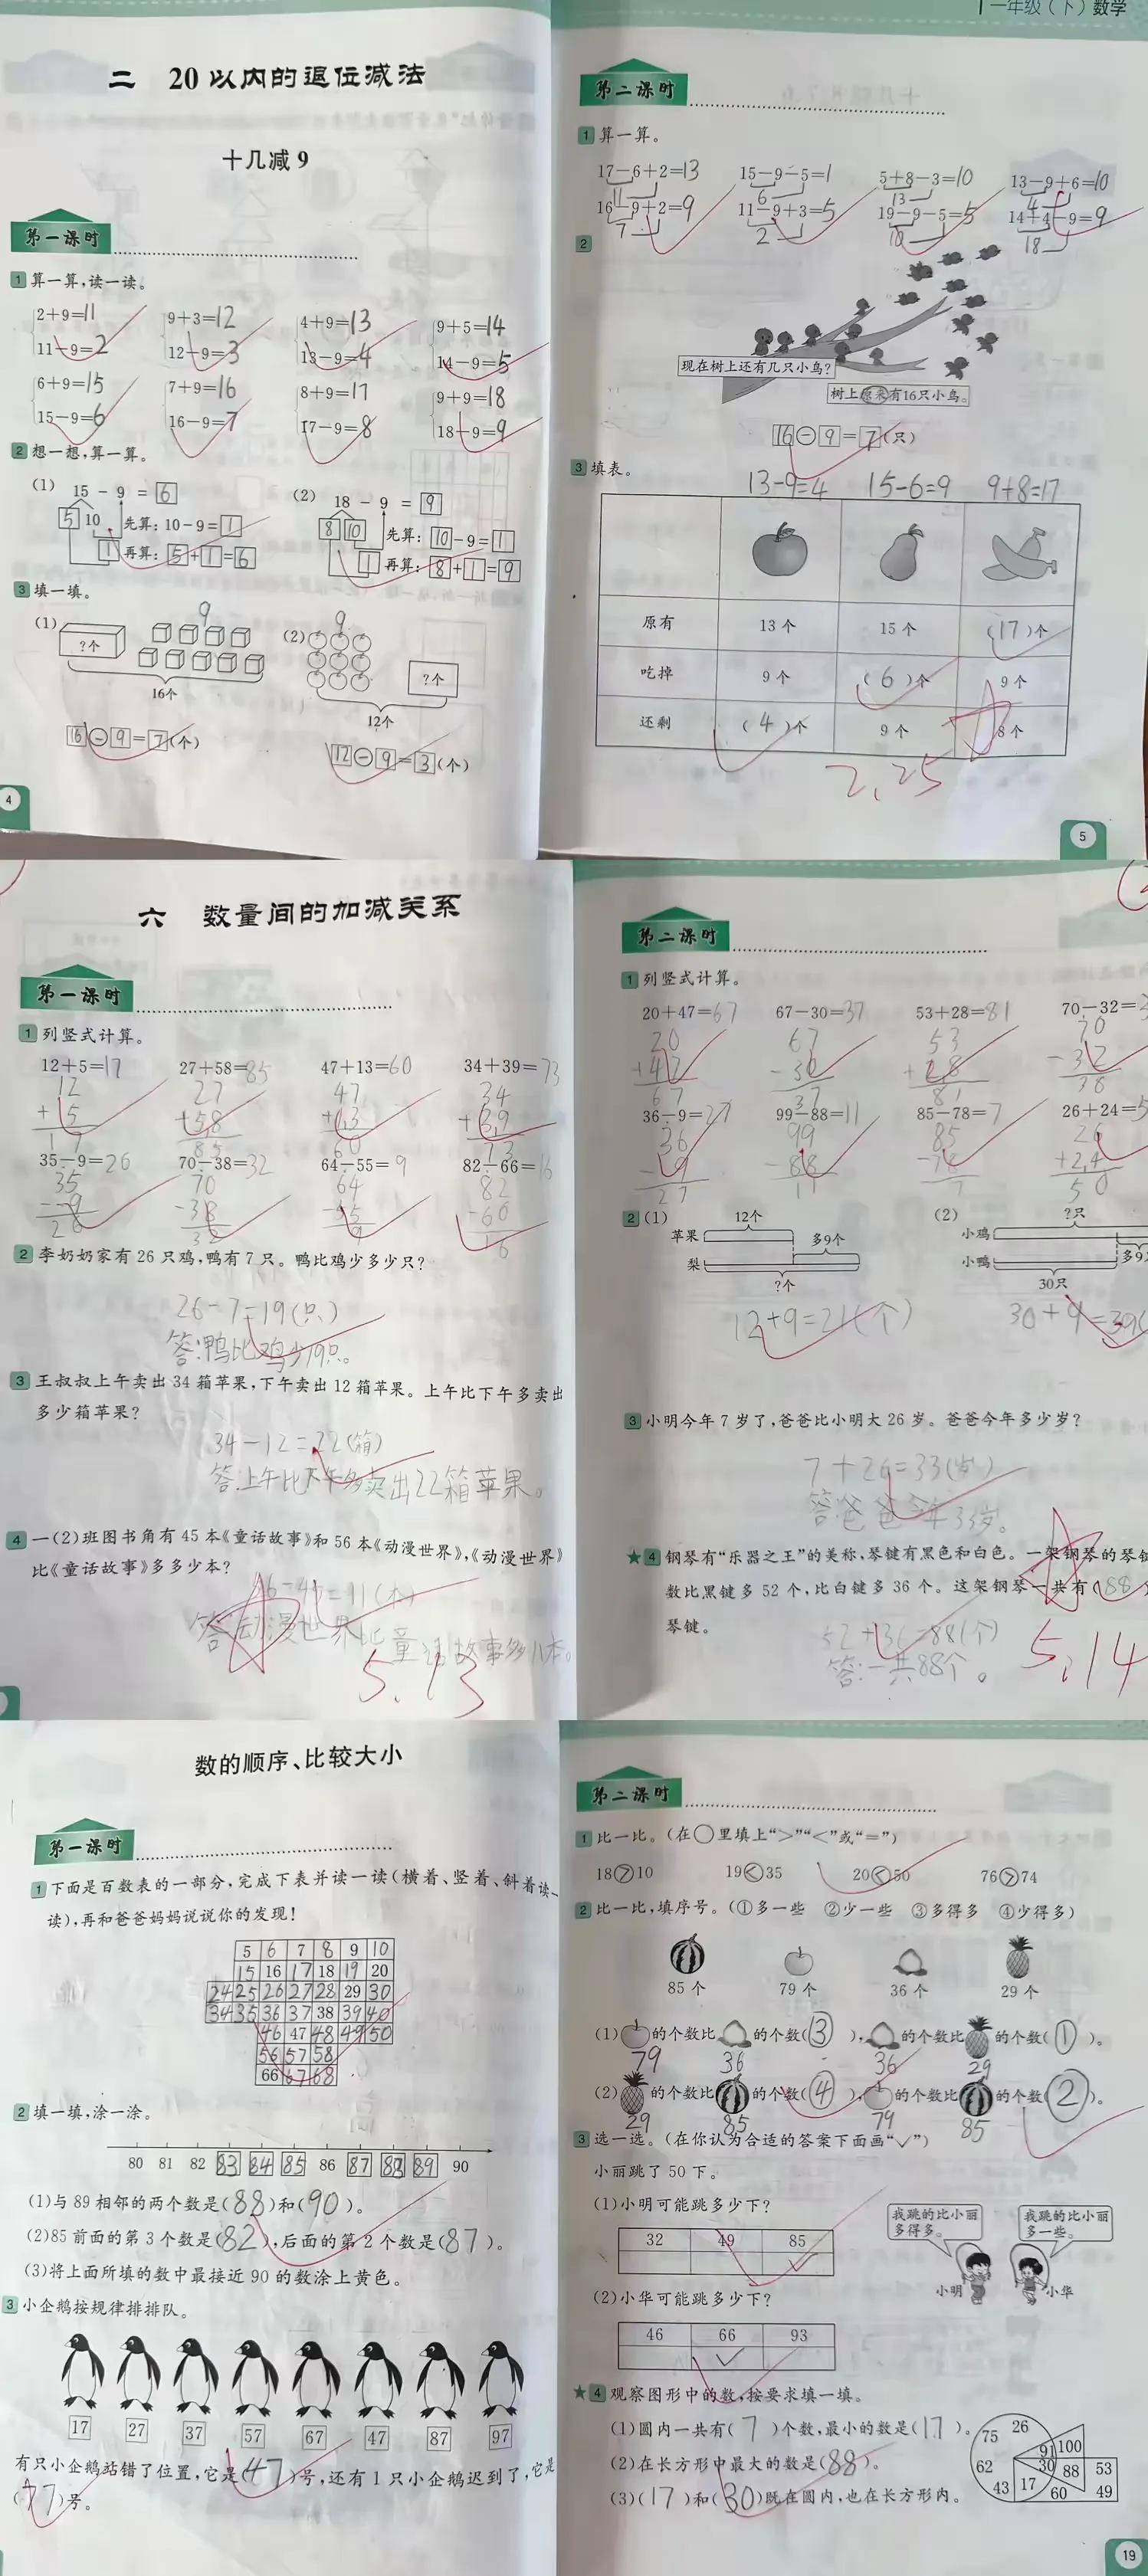 二 20以内的退位减法
十几减9
第一课时
1 算一算,读一读。
2+9=11 9+3=12 4+9=13 9+5=14
11-9=2 12-9=3 13-9=4 14-9=5
6+9=15 7+9=16 8+9=17 9+9=18
15-9=6 16-9=7 17-9=8 18-9=9
2 想一想,算一算。
(1) 15 - 9 = 6
5 10 先算:10-9=1
1 再算:5+1=6
(2) 18 - 9 = 9
8 10 先算:10-9=1
1 再算:8+1=9
3 填一填。
(1) ?个 9
16个
16-9=7(个)
(2) 9 ?个
12个
12-9=3(个)
4
一年级(下)数学
第二课时
1 算一算。
17-6+2=13 15-9-5=1 5+8-3=10 13-9+6=10
11 6 13 4
16-9+2=9 11-9+3=5 19-9-5=5 14+4-9=9
7 2 10 18
2
现在树上还有几只小鸟?
树上原来有16只小鸟。
16-9=7(只)
3 填表。
13-9=4 15-6=9 9+8=17
原有 13个 15个 (17)个
吃掉 9个 (6)个 9个
还剩 (4)个 9个 8个
2.25
5
六 数量间的加减关系
第一课时
1 列竖式计算。
12+5=17 27+58=85 47+13=60 34+39=73
12 27 47 34
+ 5 +58 +13 +39
17 85 60 73
35-9=26 70-38=32 64-55=9 82-66=16
35 70 64 82
- 9 -38 -55 -60
26 32 9 16
2 李奶奶家有26只鸡,鸭有7只。鸭比鸡少多少只?
26-7=19(只)
答:鸭比鸡少19只。
3 王叔叔上午卖出34箱苹果,下午卖出12箱苹果。上午比下午多卖出
多少箱苹果?
34-12=22(箱)
答:上午比下午多卖出22箱苹果。
4 一(2)班图书角有45本《童话故事》和56本《动漫世界》,《动漫世界》
比《童话故事》多多少本?
=11(本)
答:动漫世界比童话故事多11本。
5.13
第二课时
1 列竖式计算。
20+47=67 67-30=37 53+28=81 70-32=3
20 67 53 70
+47 -30 +28 -32
67 37 81 38
36-9=27 99-88=11 85-78=7 26+24=5
36 99 85 26
- 9 -88 -78 +24
27 11 7 50
2 (1) 12个
苹果 多9个
梨
?个
12+9=21(个)
(2) ?只
小鸡 多9
小鸭
30只
30+9=39(
3 小明今年7岁了,爸爸比小明大26岁。爸爸今年多少岁?
7+26=33(岁)
答:爸爸今年33岁。
★4 钢琴有“乐器之王”的美称,琴键有黑色和白色。一架钢琴的琴键
数比黑键多52个,比白键多36个。这架钢琴一共有(88
琴键。
52+36=88(个)
答:一共88个。
5.14
数的顺序、比较大小
第一课时
1 下面是百数表的一部分,完成下表并读一读(横着、竖着、斜着读一
读),再和爸爸妈妈说说你的发现!
5 6 7 8 9 10
15 16 17 18 19 20
24 25 26 27 28 29 30
34 35 36 37 38 39 40
46 47 48 49 50
56 57 58
66 67 68
2 填一填,涂一涂。
80 81 82 83 84 85 86 87 88 89 90
(1)与89相邻的两个数是(88)和(90)。
(2)85前面的第3个数是(82),后面的第2个数是(87)。
(3)将上面所填的数中最接近90的数涂上黄色。
3 小企鹅按规律排排队。
17 27 37 57 67 47 87 97
有只小企鹅站错了位置,它是(47)号,还有1只小企鹅迟到了,它是
(77)号。
第二课时
1 比一比。(在○里填上“>”“<”或“=”)
18>10 19<35 20<50 76>74
2 比一比,填序号。(①多一些 ②少一些 ③多得多 ④少得多)
85个 79个 36个 29个
(1) 的个数比 的个数(③), 的个数比 的个数(①)。
79 36 36 29
(2) 的个数比 的个数(④), 的个数比 的个数(②)。
29 85 79 85
3 选一选。(在你认为合适的答案下面画“✓”)
小丽跳了50下。
(1)小明可能跳多少下?
32 49 85
✓
我跳的比小丽多得多。
我跳的比小丽多一些。
小明 小华
(2)小华可能跳多少下?
46 66 93
✓
★4 观察图形中的数,按要求填一填。
(1)圆内一共有(7)个数,最小的数是(17)。
(2)在长方形中最大的数是(88)。
(3)(17)和(30)既在圆内,也在长方形内。
75 26 91 100 62 30 88 53 43 17 60 49
19